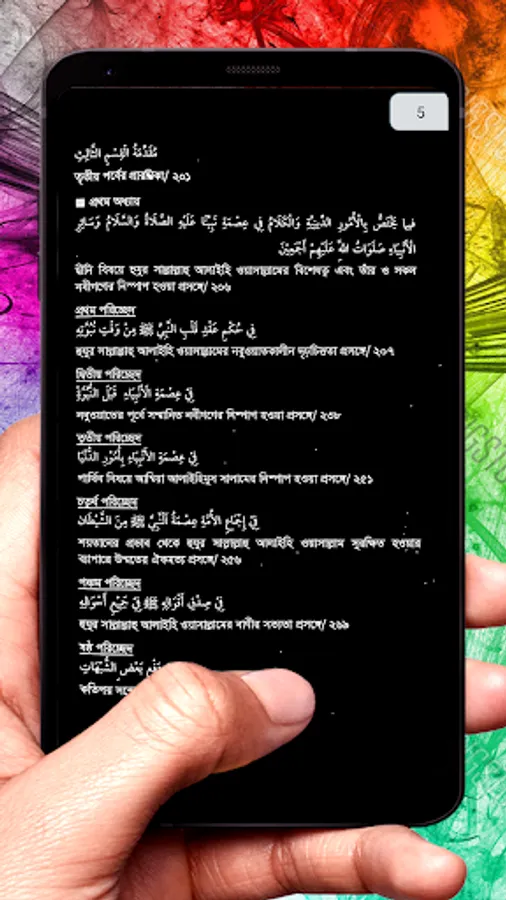 5
مُقَدِّمَةُ الْقِسْمِ الثَّالِثِ
তৃতীয় পর্বের প্রারম্ভিকা/ ২০১
■ প্রথম অধ্যায়
فِيمَا يَخْتَصُّ بِالْأُمُورِ الدِّينِيَّةِ وَالْكَلَامُ فِي عِصْمَةِ نَبِيِّنَا عَلَيْهِ الصَّلَاةُ وَالسَّلَامُ وَسَائِرِ
الْأَنْبِيَاءِ صَلَوَاتُ اللهِ عَلَيْهِمْ أَجْمَعِيْنَ
দ্বীনি বিষয়ে হুযুর সাল্লাল্লাহু আলাইহি ওয়াসাল্লামের বিশেষত্ব এবং তাঁর ও সকল
নবীগণের নিষ্পাপ হওয়া প্রসঙ্গে/ ২০৬
প্রথম পরিচ্ছেদ
فِي حُكْمِ عَقْدِ قَلْبِ النَّبِيِّ ﷺ مِنْ وَقْتِ نُبُوَّتِهِ
হুযুর সাল্লাল্লাহু আলাইহি ওয়াসাল্লামের নবুওয়াতকালীন দৃঢ়চিত্ততা প্রসঙ্গে/ ২০৭
দ্বিতীয় পরিচ্ছেদ
فِي عِصْمَةِ الْأَنْبِيَاءِ قَبْلَ النُّبُوَّةِ
নবুওয়াতের পূর্বে সম্মানিত নবীগণের নিষ্পাপ হওয়া প্রসঙ্গে/ ২৩৮
তৃতীয় পরিচ্ছেদ
فِي عِصْمَةِ الْأَنْبِيَاءِ بِأُمُورِ الدُّنْيَا
পার্থিব বিষয়ে আম্বিয়া আলাইহিমুস সালামের নিষ্পাপ হওয়া প্রসঙ্গে/ ২৫১
চতুর্থ পরিচ্ছেদ
فِي إِجْمَاعِ الْأُمَّةِ عِصْمَةُ النَّبِيِّ ﷺ مِنَ الشَّيْطَانِ
শয়তানের প্রভাব থেকে হুযুর সাল্লাল্লাহু আলাইহি ওয়াসাল্লাম সুরক্ষিত হওয়ার
ব্যাপারে উম্মতের ঐকমত্য প্রসঙ্গে/ ২৫৬
পঞ্চম পরিচ্ছেদ
فِي صِدْقِ أَقْوَالِهِ ﷺ فِي جَمِيْعِ أَحْوَالِهِ
হুযুর সাল্লাল্লাহু আলাইহি ওয়াসাল্লামের বাণীর সত্যতা প্রসঙ্গে/ ২৬৯
ষষ্ঠ পরিচ্ছেদ
بَعْضِ الشُّبُهَاتِ
কতিপয়